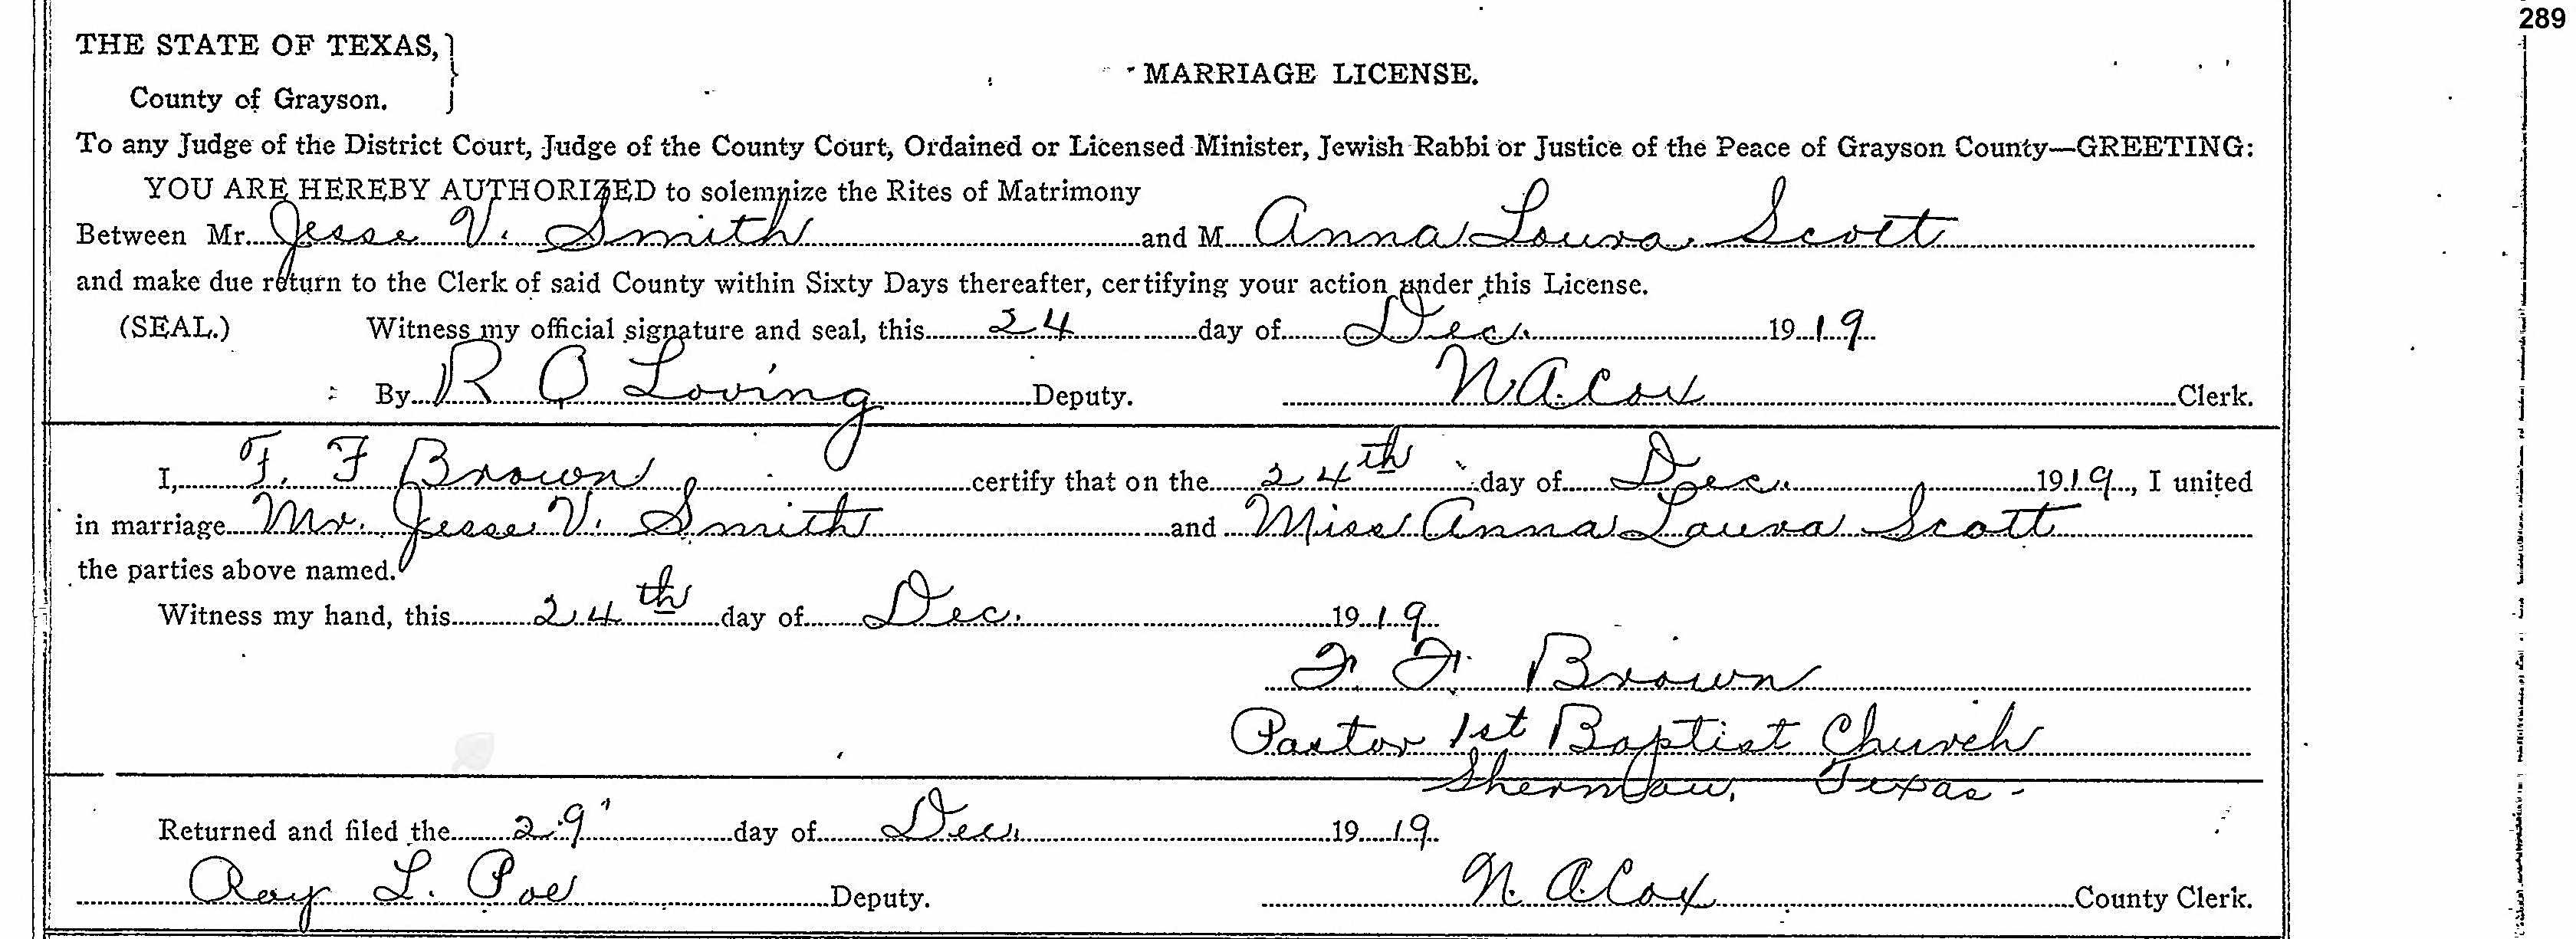 289
THE STATE OF TEXAS,
County of Grayson.
MARRIAGE LICENSE.
To any Judge of the District Court, Judge of the County Court, Ordained or Licensed Minister, Jewish Rabbi or Justice of the Peace of Grayson County—GREETING:
YOU ARE HEREBY AUTHORIZED to solemnize the Rites of Matrimony
Between Mr. Jesse V. Smith and M Anna Loura Scott
and make due return to the Clerk of said County within Sixty Days thereafter, certifying your action under this License.
(SEAL.) Witness my official signature and seal, this 24 day of Dec. 1919
By R O Loving Deputy. N A. Cox Clerk.
I, F. F Brown certify that on the 24th day of Dec. 1919, I united
in marriage Mr. Jesse V. Smith and Miss Anna Laura Scott
the parties above named.
Witness my hand, this 24th day of Dec. 1919
F. F. Brown
Pastor 1st Baptist Church
Sherman, Texas-
Returned and filed the 29' day of Dec. 1919
Ray L. Poe Deputy. N. A. Cox County Clerk.